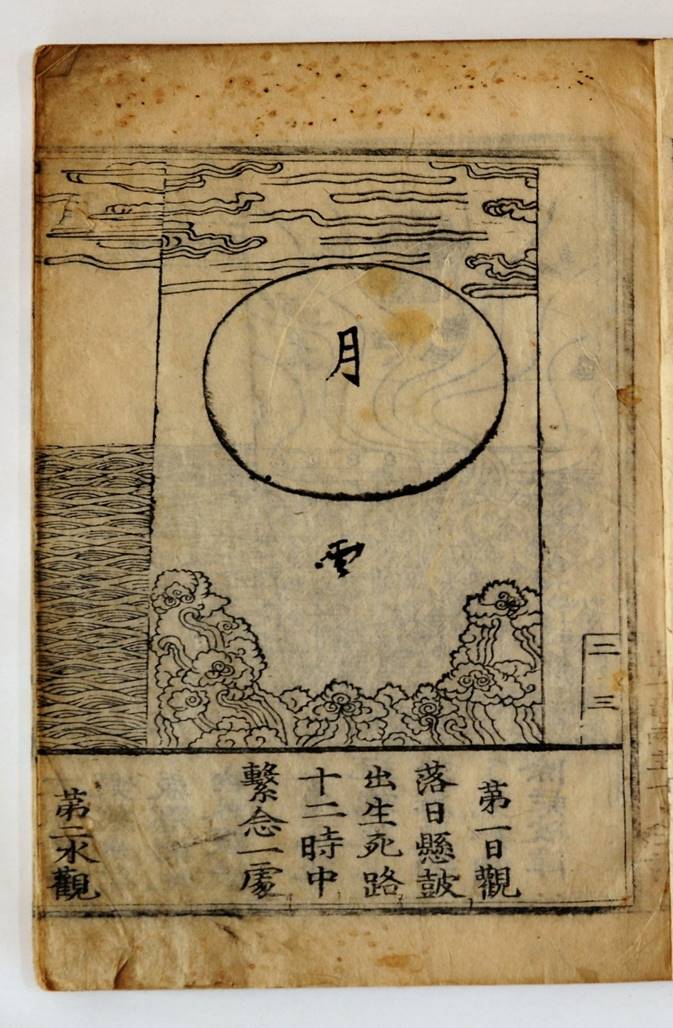 月
雲
二
三
第一日觀
落日懸鼓
出生死路
十二時中
繫念一處
第二水觀